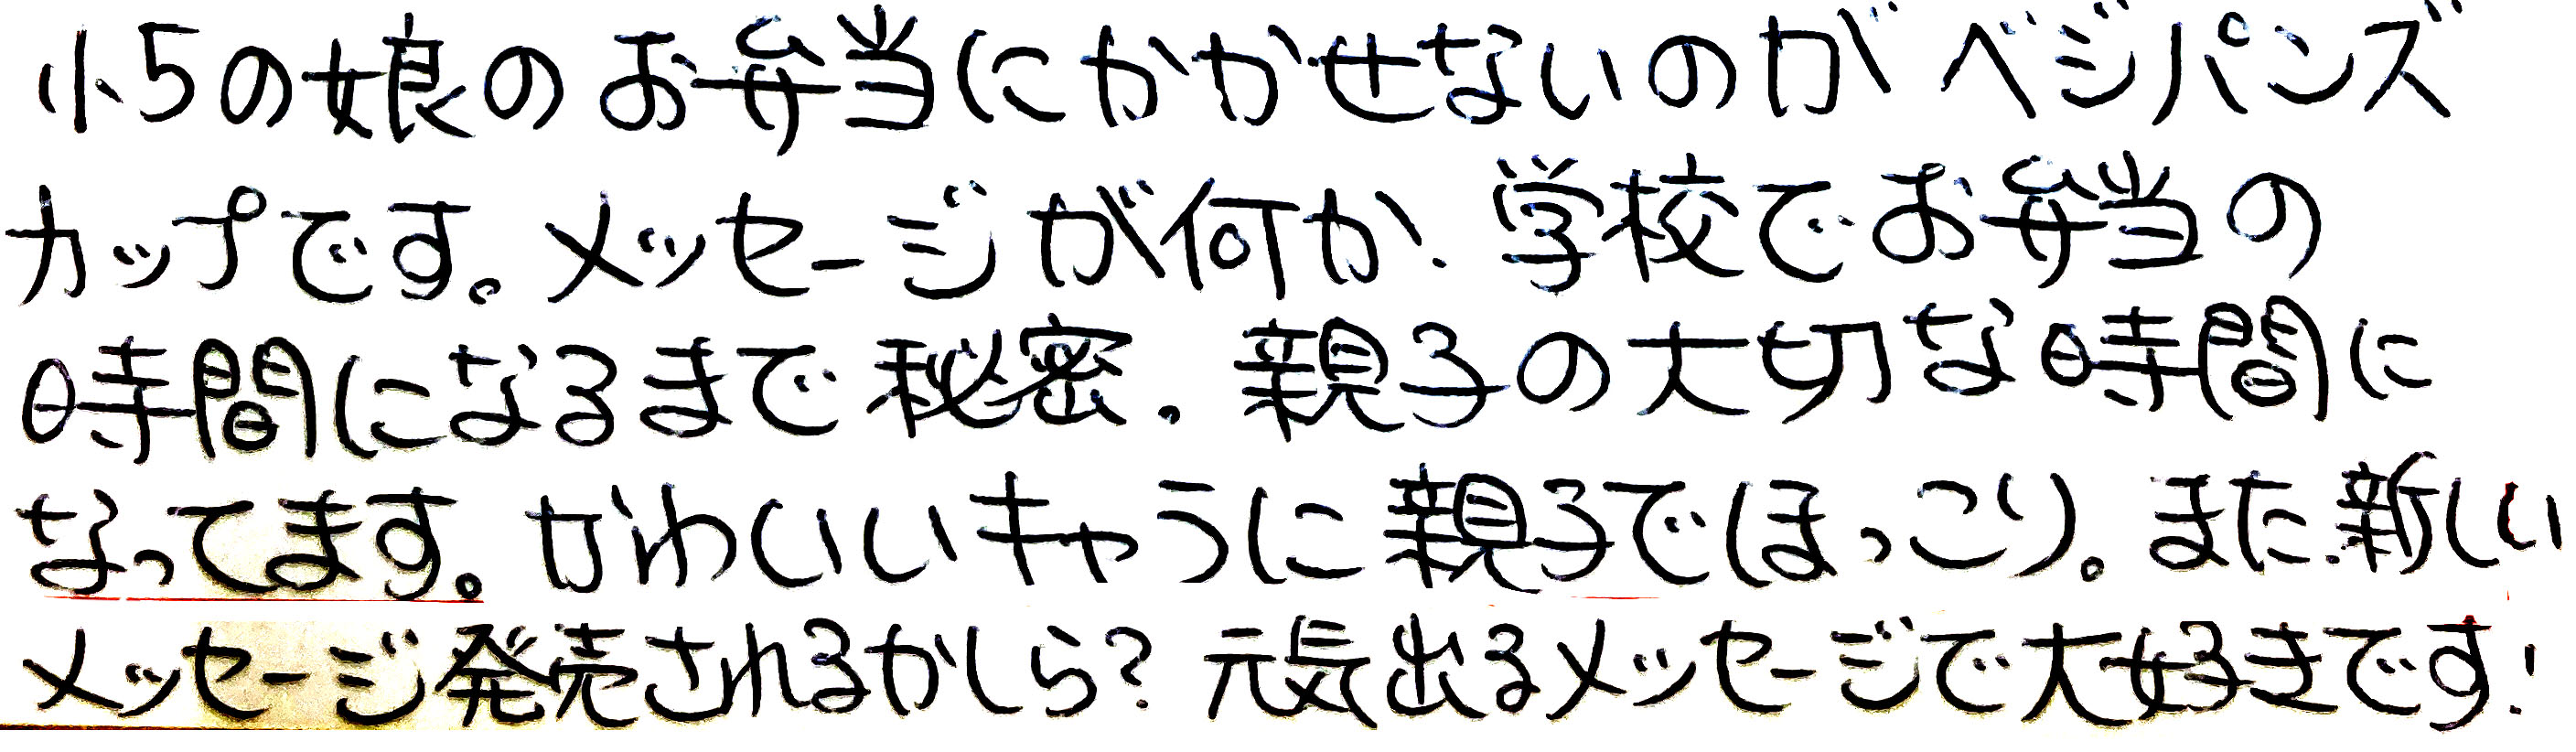 小5の娘のお弁当にかかせないのがベジパンズ
カップです。メッセージが何か、学校でお弁当の
時間になるまで秘密。親子の大切な時間に
なってます。かわいいキャラに親子でほっこり。また新しい
メッセージ発売されるかしら?元気出るメッセージで大好きです!